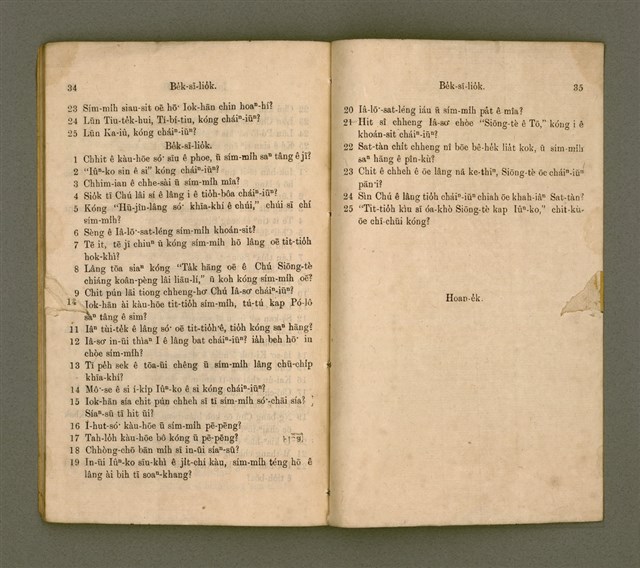 34 Be̍k-sī-lio̍k.
23 Sím-mi̍h siau-sit oē hō͘ Iok-hān chin hoaⁿ-hí?
24 Lūn Tiu-te̍k-hui, Tí-bí-tiu, kóng cháiⁿ-iūⁿ?
25 Lūn Ka-iû, kóng cháiⁿ-iūⁿ?
Be̍k-sī-lio̍k.
1 Chhit ê kàu-hōe só͘ siu ê phoe, ū sím-mi̍h saⁿ tâng ê jī?
2 “Iûⁿ-ko sin ê si” kóng cháiⁿ-iūⁿ?
3 Chhim-ian ê chhe-sài ū sím-mi̍h mîa?
4 Sio̍k tī Chú lâi sí ê lâng i ê tit-tio̍h-bōa cháiⁿ-iūⁿ?
5 Kóng “Hū-jîn-lâng só͘ khîa-khí ê chúi,” chúi sī chí
sím-mi̍h?
6 Sèng ê Iâ-lō͘-sat-léng sím-mi̍h khoán-sit?
7 Tē it, tē jī chiuⁿ ū kóng sím-mi̍h hō lâng oē tit-tio̍h
hok-khì?
8 Lâng tōa siaⁿ kóng “Ta̍k hāng oē ê Chú Siōng-tè
chiáng koân-pèng lâi liāu-lí,” ū koh kóng sím-mi̍h oē?
9 Chit pún lāi tiong chheng-ho͘ Chú Iâ-so͘ cháiⁿ-iūⁿ?
Iok-hān ài kàu-hōe tit-tio̍h sím-mi̍h, tú-tú kap Pó-lô
saⁿ tâng ê sim?
11 Iâⁿ tùi-te̍k ê lâng só͘ oē tit-tio̍h ê, tio̍h kóng saⁿ hāng?
12 Iâ-so͘ in-ūi thìaⁿ I ê lâng bat cháiⁿ-iūⁿ? ia̍h beh hō͘ in
chòe sím-mi̍h?
13 Tī pe̍h sek ê tōa-ūi chêng ū sím-mi̍h lâng chū-chi̍p
khīa-khí?
14 Mô͘-se ê si í-ki̍p Iûⁿ-ko ê si kóng cháiⁿ-iūⁿ?
15 Iok-hān sía chit pún chheh sī tī sím-mi̍h só͘-chāi sía?
Síaⁿ-sū tī hit ūi?
16 Í-hut-só͘ kàu-hōe ū sím-mi̍h pē-pēng?
17 Tah-lo̍h kàu-hōe bô kóng ū pē-pēng?
18 Chhòng-chō bān mi̍h sī in-ūi síaⁿ-sū?
19 In-ūi Iûⁿ-ko siū-khì ê ji̍t-chí kàu, sím-mi̍h téng hō ê
lâng ài bih tī soaⁿ-khang?
Be̍k-sī-lio̍k. 35
20 Iâ-lō͘-sat-léng iáu ū sím-mi̍h pa̍t ê mîa?
21 Hit sî chheng Iâ-so͘ chòe “Siōng-tè ê Tō,” kóng i ê
khoán-sit cháiⁿ-iūⁿ?
22 Sat-tàn chít chheng nî bōe bê-he̍k lia̍t kok, ū sím-mi̍h
saⁿ hāng ê pîn-kù?
23 Chit ê chheh ê ōe lâng nā ke-thiⁿ, Siōng-tè ōe cháiⁿ-iūⁿ
pān-i?
24 Sìn Chú ê lâng tio̍h cháiⁿ-iūⁿ chiah ōe khah-iâⁿ Sat-tàn?
25 “Tit-tio̍h kìu sī óa-khò Siōng-tè kap Iûⁿ-ko,” chit-kù-
ōe chī-chūi kóng?
Hoan-e̍k.